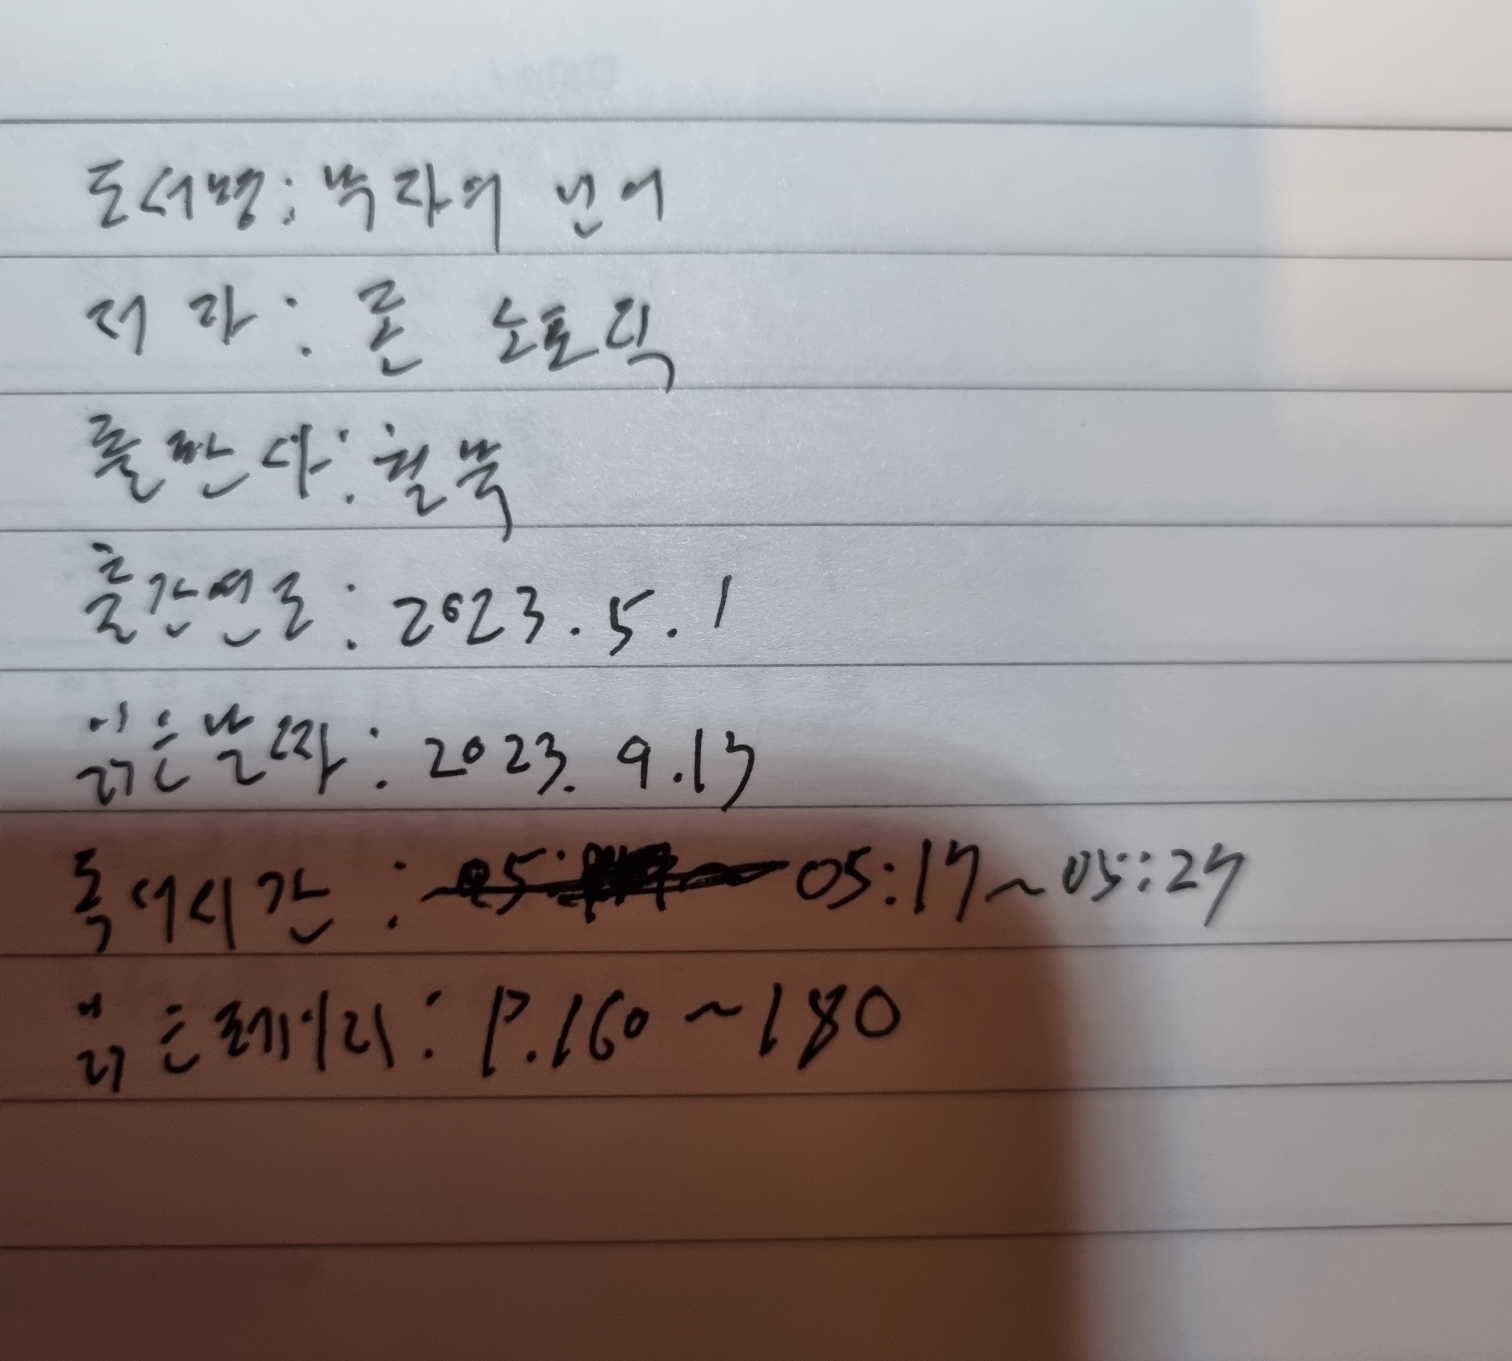 도서명: 부자의 언어
저자: 존 소포릭
출판사: 윌북
출간연도: 2023.5.1
읽은날짜: 2023. 9.17
독서시간: 05:17~05:27
읽은페이지: P.160~180